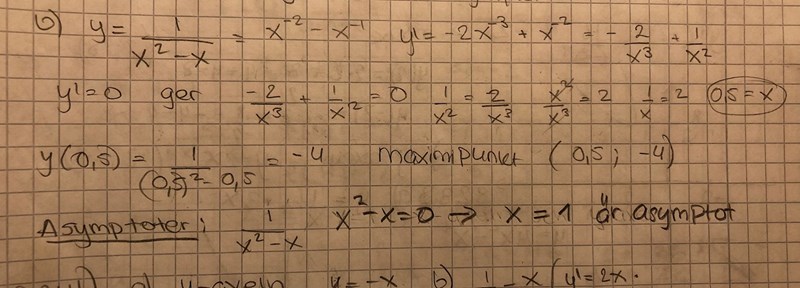 b) y = 1/(x² - x) = x⁻² - x⁻¹ y' = -2x⁻³ + x⁻² = - 2/x³ + 1/x²
y' = 0 ger -2/x³ + 1/x² = 0 1/x² = 2/x³ x²/x³ = 2 1/x = 2 0,5 = x
y(0,5) = 1/((0,5)² - 0,5) = -4 maximipunkt (0,5; -4)
Asymptoter: 1/(x² - x) x² - x = 0 → x = 1 är asymptot
y = -x b) 1 - x y' = 2x